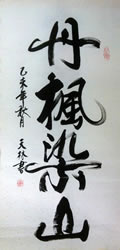 丹楓染山
乙未年秋月
天林書